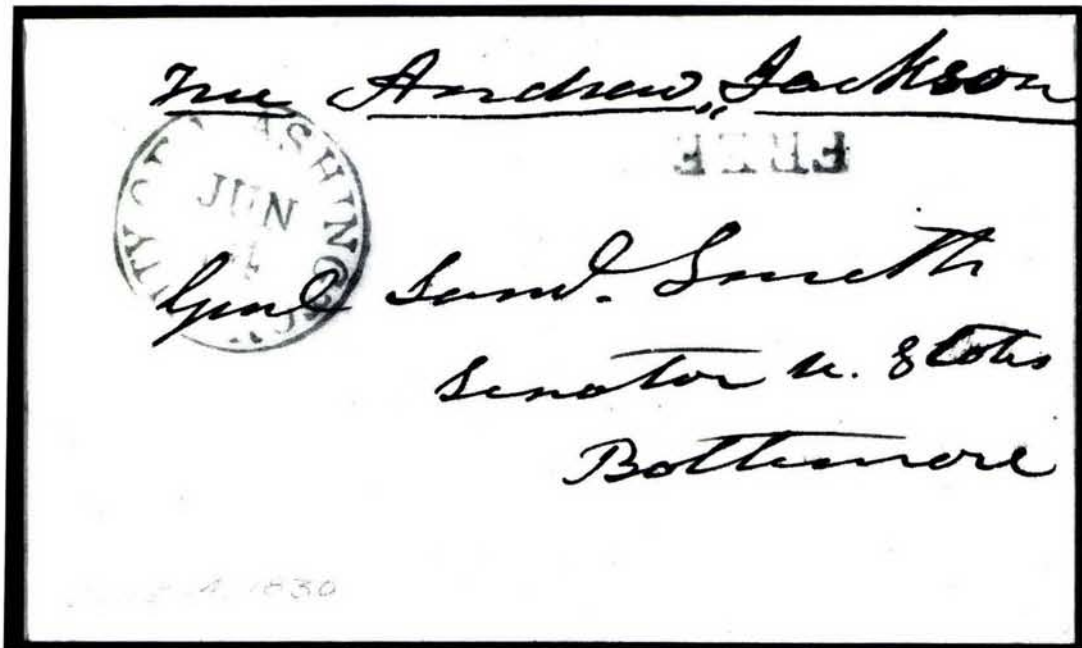 Free Andrew Jackson
FREE
CITY OF WASHINGTON
JUN
Genl Saml. Smith
Senator U. States
Baltimore
4, 1830